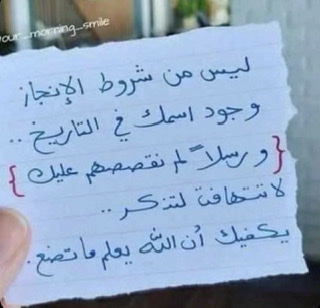 your_morning_smile
ليس من شروط الإنجاز
وجود اسمك في التاريخ ..
{ ورسلاً لم نقصصهم عليك }
لا تتهافت لتذكر ..
يكفيك أن الله يعلم ما تصنع.